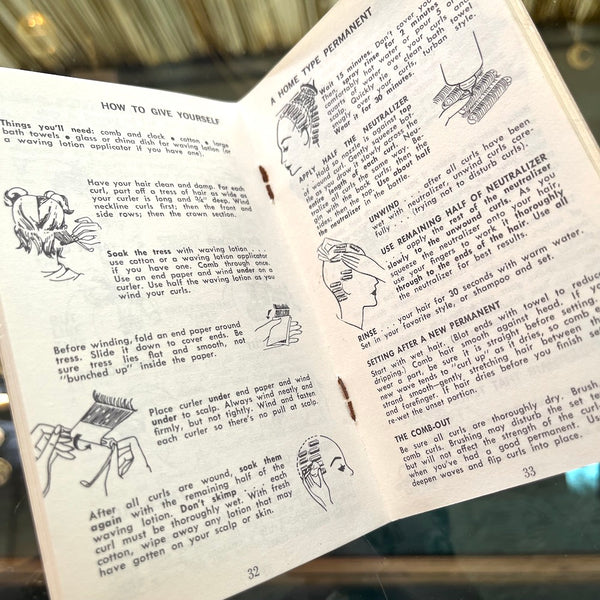 HOW TO GIVE YOURSELF
Things you'll need: comb and clock • cotton • large
bath towels • glass or china dish for waving lotion (or
a waving lotion applicator if you have one).
Have your hair clean and damp. For each
curl, part off a tress of hair as wide as
your curler is long and ¾" deep. Wind
neckline curls first; then the front and
side rows; then the crown section.
Soak the tress with waving lotion . . .
use a cotton or a waving lotion applicator
if you have one. Comb through once.
Use an end paper and wind under on a
curler. Use half the waving lotion as you
wind your curls.
Before winding, fold an end paper around
tress. Slide it down to cover ends. Be
sure tress lies flat and smooth, not
"bunched up" inside the paper.
Place curler under end paper and wind
under to scalp. Always wind neatly and
firmly, but not tightly. Wind and fasten
each curler so there's no pull at scalp.
After all curls are wound, soak them
again with the remaining half of the
waving lotion. Don't skimp . . . each
curl must be thoroughly wet. With fresh
cotton, wipe away any lotion that may
have gotten on your scalp or skin.
32
A HOME TYPE PERMANENT
Wait 15 minutes. Don't cover your
Then spray rinse for 2 minutes
comfortably hot water or pour 5
quarts of water over your curls and
scalp. Quickly tie a clean bath towel
over your curls, turban style.
Wear it for 30 minutes.
APPLY HALF THE NEUTRALIZER
Hold nozzle against top
of wound curl. Gently squeeze bot-
tle as you draw it slowly across the
entire length of each curl. Neu-
tralize all curls the same way. Begin
with the back curls, then the
sides; then the
the neutralizer in the bottle. about half
UNWIND . . . after all curls have been
wet with neutralizer, unwind curls care-
fully . . . (trying not to disturb curls).
USE REMAINING HALF OF NEUTRALIZER
. . . apply the rest of the neutralizer
slowly to the unwound curls. As you
squeeze the neutralizer onto your hair,
use your fingers to work it thoroughly
through to the ends of the hair. Use all
the neutralizer for best results.
RINSE . . . your hair for 30 seconds with warm water.
Set in your favorite style, or shampoo and set.
SETTING AFTER A NEW PERMANENT
Start with wet hair. (Blot ends with towel to reduce
dripping.) Comb hair smooth against head. If you
wear a part, be sure it is straight before setting.
new wave tends to "curl up" as it dries, so comb e
strand smooth—gently stretching hair between th
and forefinger. If hair dries before you finish the
re-wet the unset portion.
THE COMB-OUT
Be sure all curls are thoroughly dry. Brush
comb curls. Brushing may disturb the set
but will not affect the strength of the curls
when you've had a good permanent. Us
deepen waves and flip curls into place.
33